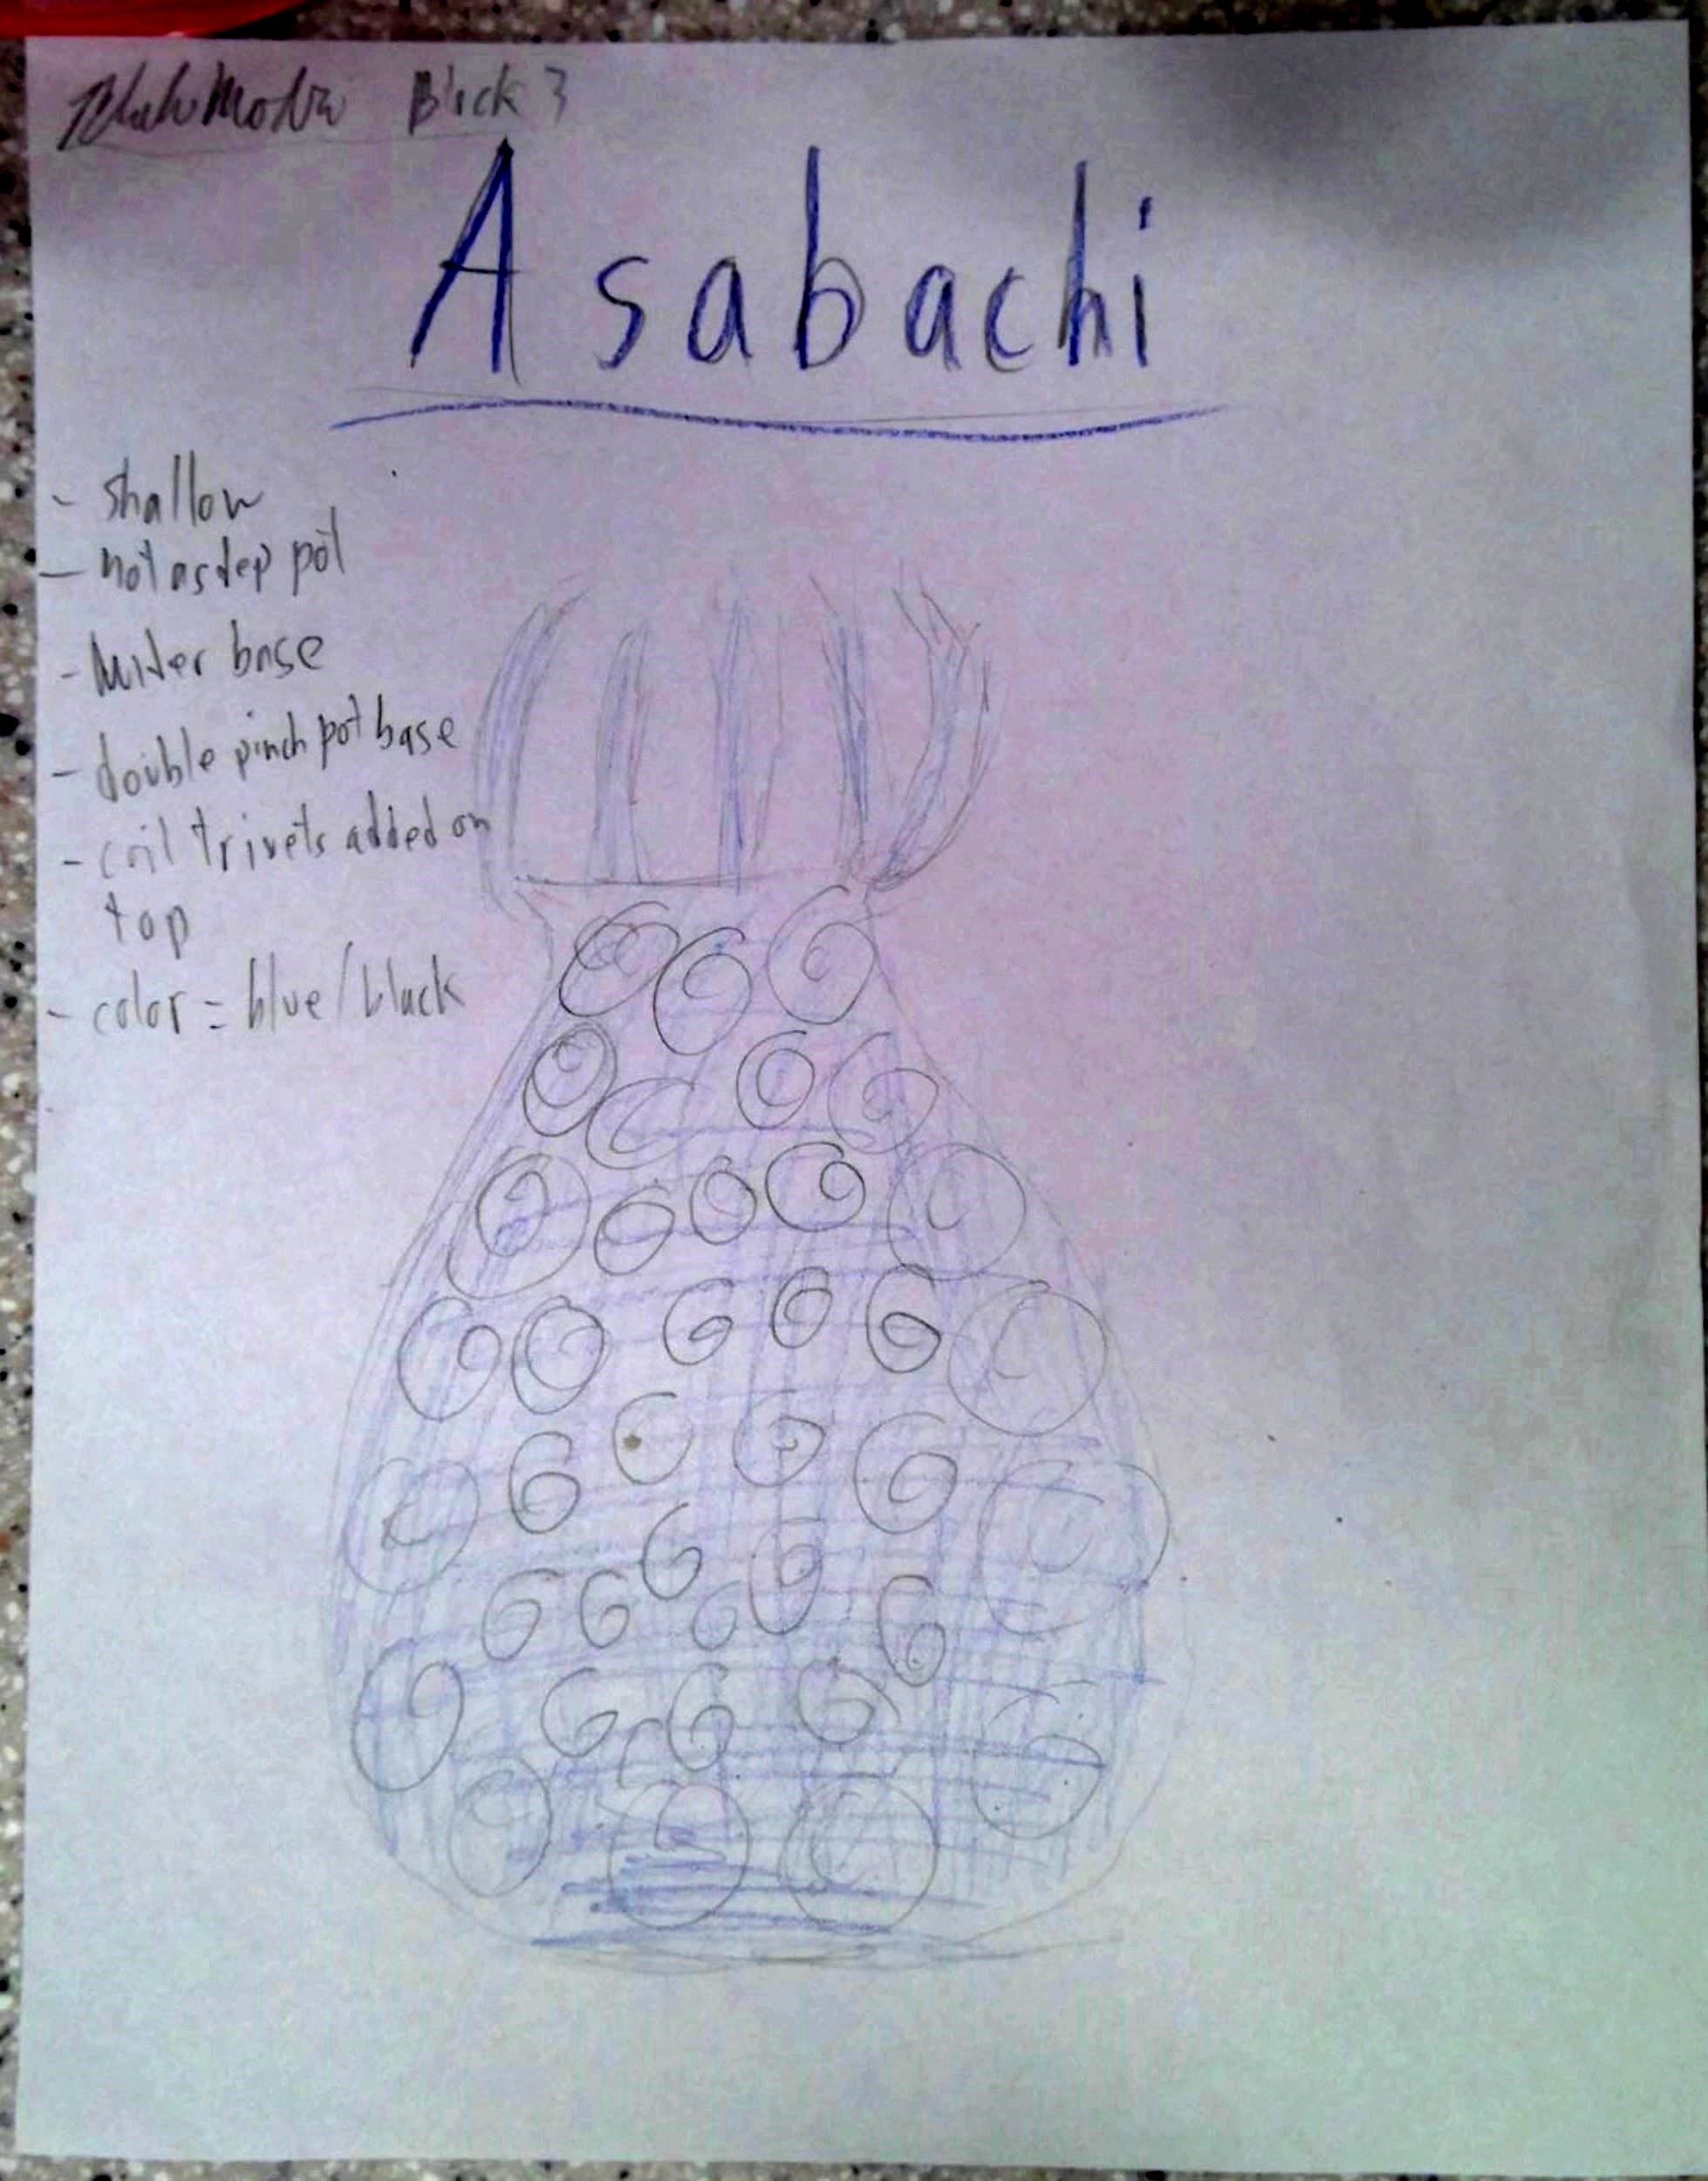 Block 3
Asabachi
- shallow
- not as dep pot
- wider base
- double pinch pot base
- coil trivets added on
top
- color = blue/black